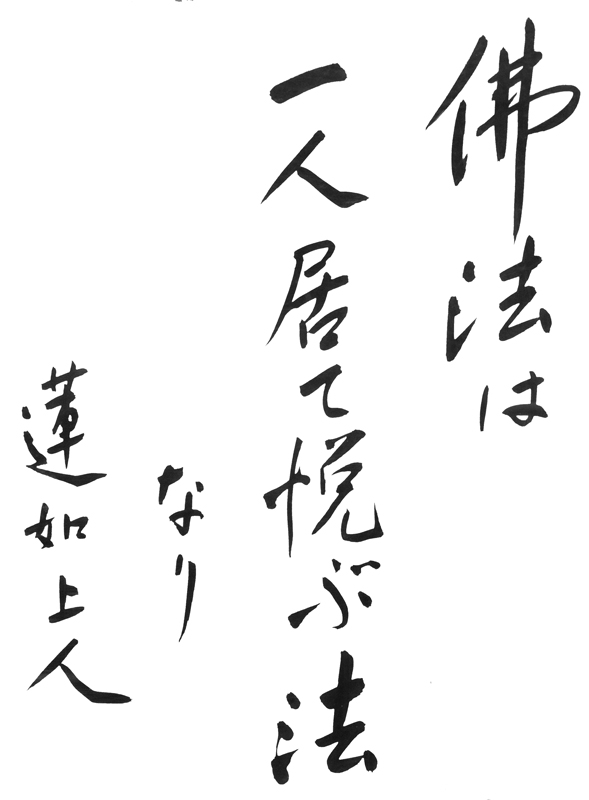 佛法は
一人居て悦ぶ法
なり
蓮如上人